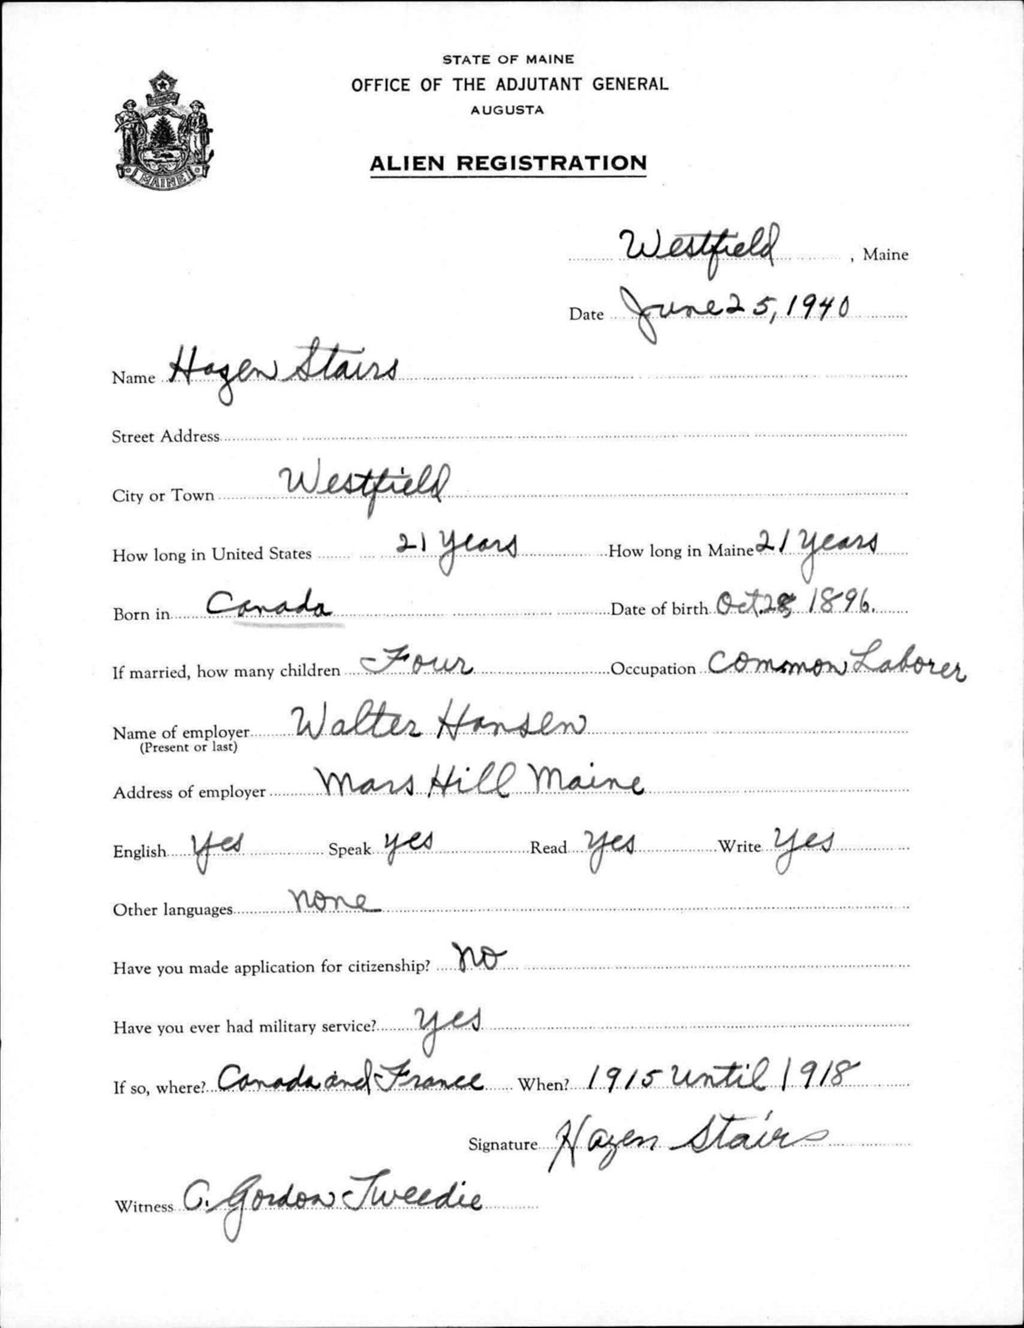 STATE OF MAINE
OFFICE OF THE ADJUTANT GENERAL
AUGUSTA
ALIEN REGISTRATION
MAINE
Westfield, Maine
Date June 25, 1940
Name Hazen Stairs
Street Address
City or Town Westfield
How long in United States 21 years How long in Maine 21 years
Born in Canada Date of birth Oct. 28, 1896.
If married, how many children Four Occupation Common Laborer
Name of employer Walter Hansen
(Present or last)
Address of employer Mars Hill Maine
English Yes Speak yes Read Yes Write Yes
Other languages none
Have you made application for citizenship? no
Have you ever had military service? yes
If so, where? Canada and France When? 1915 until 1918
Signature Hazen Stairs
Witness C. Gordon Tweedie